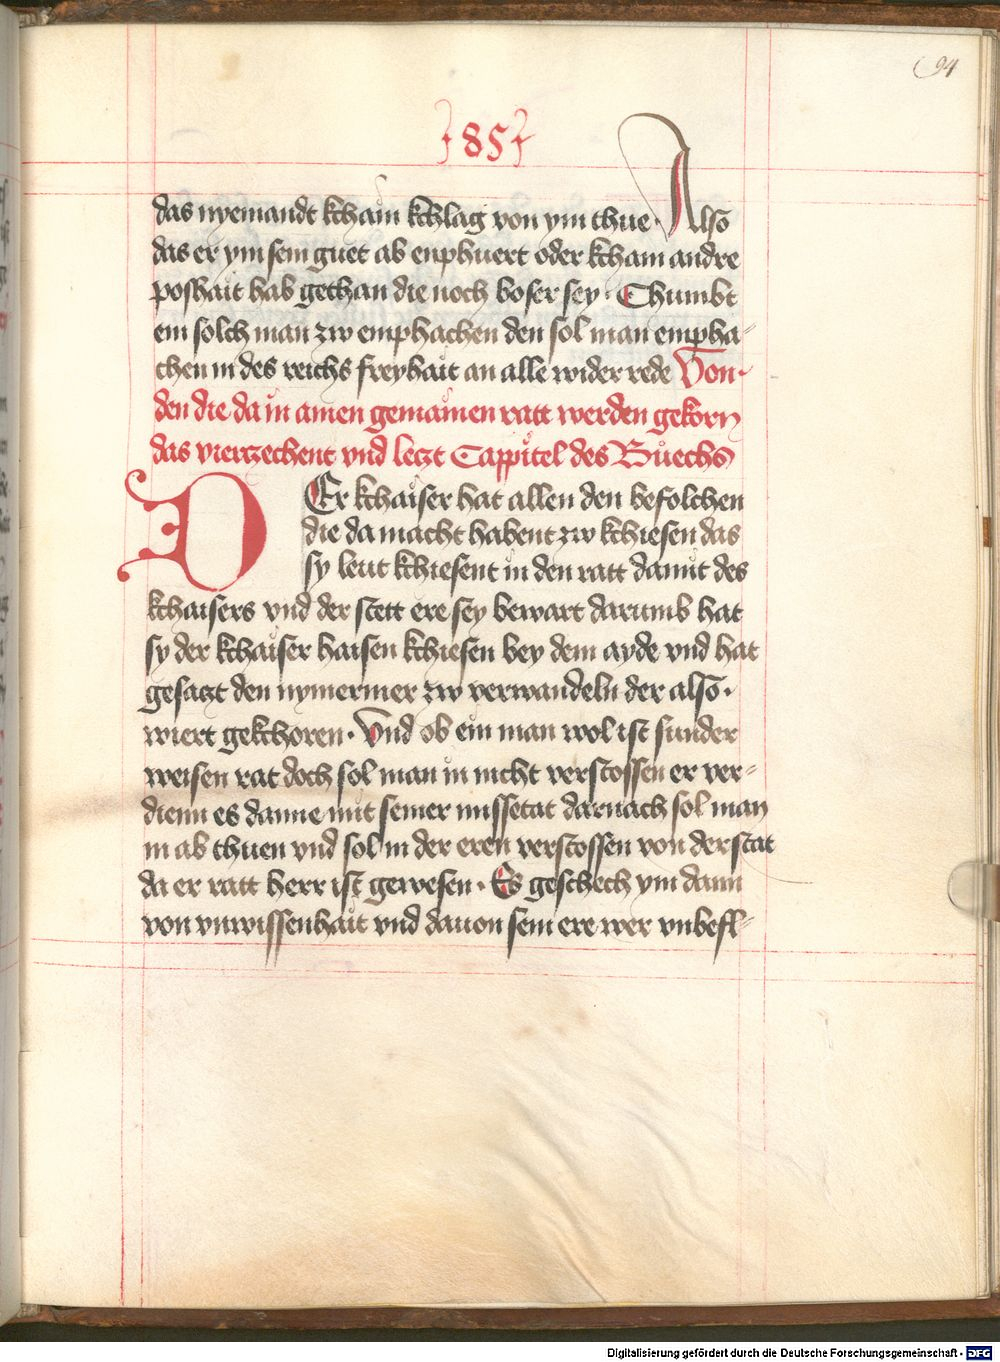 94
185
das nyemandt kchain kchlag von ym thue · Also
das er ym sein guet ab enphuert oder kchain andre
poshait hab gethan die noch boser sey · Chumbt
ein solch man zw emphachen den sol man empha-
chen in des reichs freyhait an alle wider rede Von ·
den die da in ainen gemainen ratt werden gekorn
das vierzechent vnd leczt Cappitel des Buechs
DEr kchaiser hat allen den befolchen
die da macht habent zw kchiesen das
sy leut kchiesent in den ratt damit des
kchaisers vnd der stett ere sey bewart darumb hat
sy der kchaiser haisen kchiesen bey dem ayde vnd hat
gesaczt den nymermer zw verwandeln der also ·
wiert gekchoren · Vnd ob ein man wol ist sunder
weisen rat doch sol man in nicht verstossen er ver-
dienn es danne mit seiner missetat darnach sol man
in ab thuen vnd sol in der eren verstossen von der stat
da er ratt herr ist gewesen · Es geschech ym dann
von vnwissenhait vnd dauon sein ere wer vnbefl-
Digitalisierung gefördert durch die Deutsche Forschungsgemeinschaft - DFG